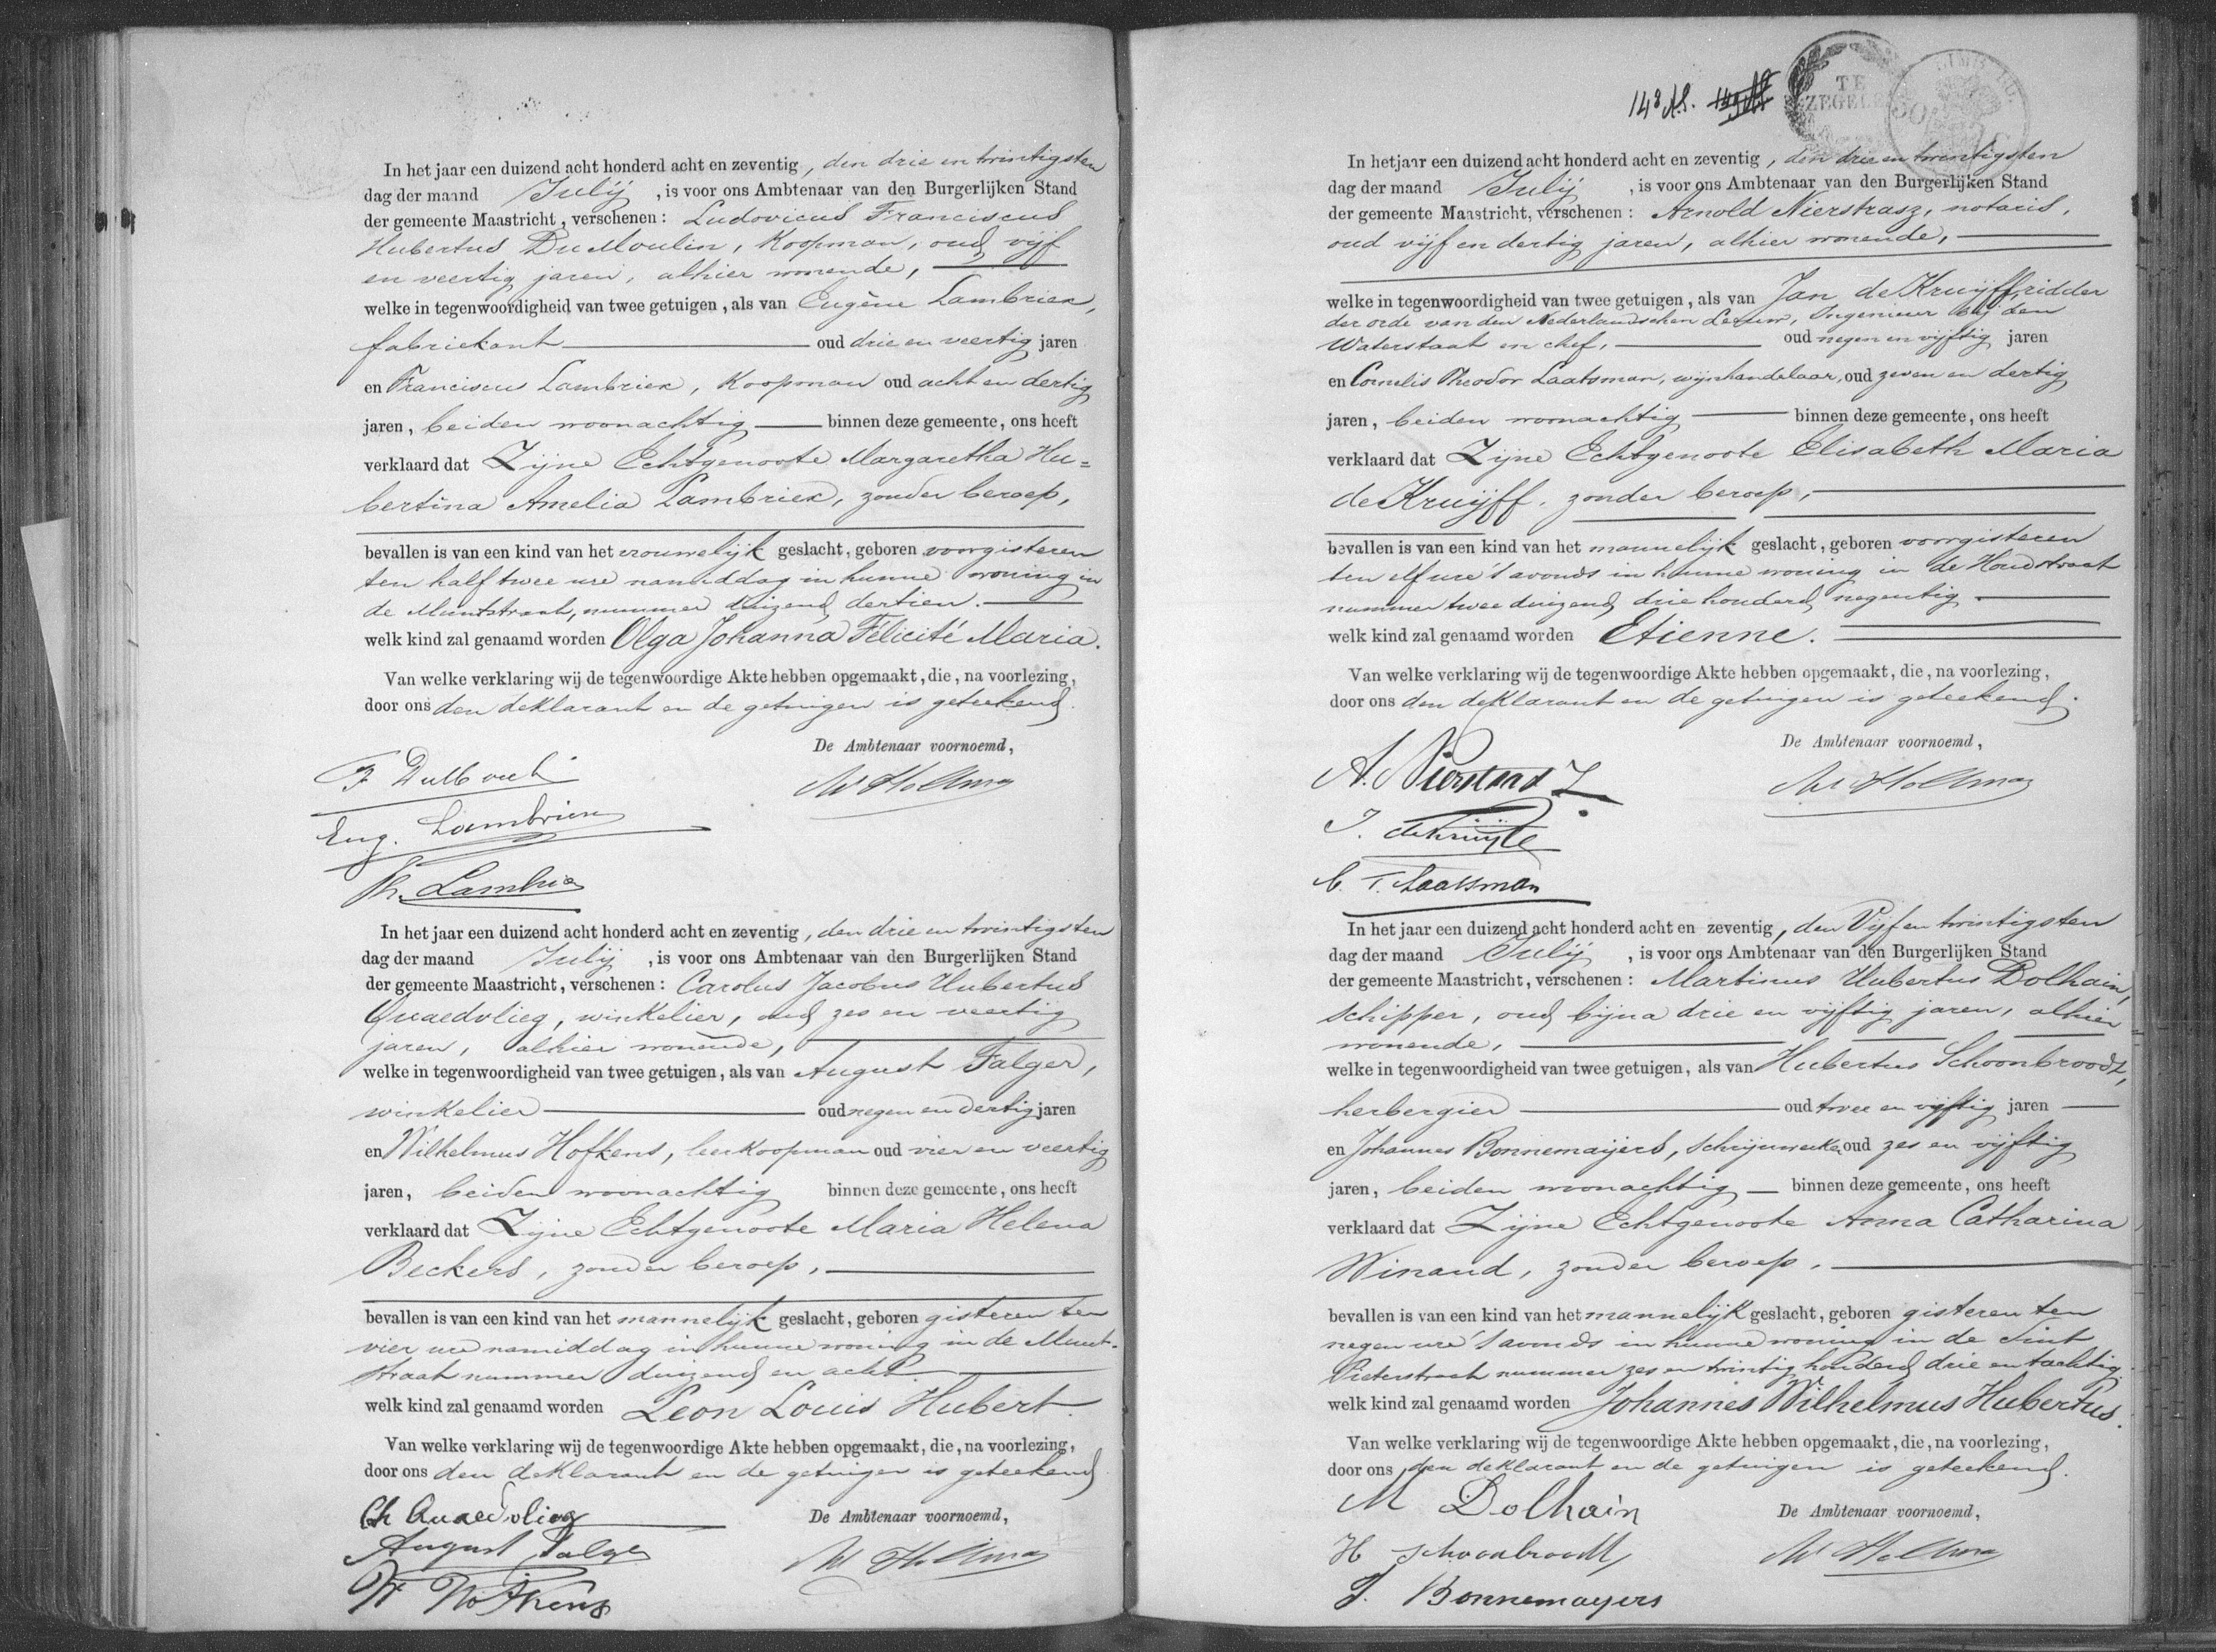 In het jaar een duizend acht honderd acht en zeventig, den drie en twintigsten
dag der maand Julij, is voor ons Ambtenaar van den Burgerlijken Stand
der gemeente Maastricht, verschenen: Ludovicus Franciscus
Hubertus DuMoulin, Koopman, oud vijf
en veertig jaren, alhier wonende,
welke in tegenwoordigheid van twee getuigen, als van Eugène Lambriex,
fabriekant oud drie en veertig jaren
en Franciscus Lambriex, Koopman oud acht en dertig
jaren, beiden woonachtig binnen deze gemeente, ons heeft
verklaard dat Zijne Echtgenoote Margaretha Hu=
bertina Amelia Lambriex, zonder beroep,
bevallen is van een kind van het vrouwelijk geslacht, geboren voorgisteren
ten half twee ure namiddag in hunne woning in
de Muntstraat, nummer duizend dertien.
welk kind zal genaamd worden Olga Johanna Félicité Maria.
Van welke verklaring wij de tegenwoordige Akte hebben opgemaakt, die, na voorlezing,
door ons den deklarant en de getuigen is geteekend.
De Ambtenaar voornoemd,
Eug. Lambriex
Lambriex
In het jaar een duizend acht honderd acht en zeventig, den drie en twintigsten
dag der maand Julij, is voor ons Ambtenaar van den Burgerlijken Stand
der gemeente Maastricht, verschenen: Carolus Jacobus Hubertus
Quaedvlieg, winkelier, oud zes en veertig
jaren, alhier wonende,
welke in tegenwoordigheid van twee getuigen, als van August Falger,
winkelier oud negen en dertig jaren
en Wilhelmus Hofkens, leerkoopman oud vier en veertig
jaren, beiden woonachtig binnen deze gemeente, ons heeft
verklaard dat Zijne Echtgenoote Maria Helena
Beckers, zonder beroep,
bevallen is van een kind van het mannelijk geslacht, geboren gisteren ten
vier ure namiddag in hunne woning in de Munt-
straat nummer duizend en acht
welk kind zal genaamd worden Leon Louis Hubert.
Van welke verklaring wij de tegenwoordige Akte hebben opgemaakt, die, na voorlezing,
door ons den deklarant en de getuigen is geteekend
De Ambtenaar voornoemd,
Ch Quaedvlieg
August Falger
W Hofkens
TE
ZEGELE
In het jaar een duizend acht honderd acht en zeventig, den drie en twintigsten
dag der maand Julij, is voor ons Ambtenaar van den Burgerlijken Stand
der gemeente Maastricht, verschenen: Arnold Nierstrasz, notaris,
oud vijf en dertig jaren, alhier wonende,
welke in tegenwoordigheid van twee getuigen, als van Jan de Kruijff, ridder
der orde van den Nederlandschen Leeuw, Ingenieur bij den
Waterstaat en chef, oud negen en vijftig jaren
en Cornelis Theodor Laatsman, wijnhandelaar, oud zeven en dertig
jaren, beiden woonachtig binnen deze gemeente, ons heeft
verklaard dat Zijne Echtgenoote Elisabeth Maria
de Kruijff, zonder beroep,
bevallen is van een kind van het mannelijk geslacht, geboren voorgisteren
ten elf ure 's avonds in hunne woning in de Houdstraat
nummer twee duizend drie honderd negentig
welk kind zal genaamd worden Etienne.
Van welke verklaring wij de tegenwoordige Akte hebben opgemaakt, die, na voorlezing,
door ons den deklarant en de getuigen is geteekend.
De Ambtenaar voornoemd,
A. Nierstrasz
J. de Kruijff
C. T. Laatsman
In het jaar een duizend acht honderd acht en zeventig, den Vijf en twintigsten
dag der maand Julij, is voor ons Ambtenaar van den Burgerlijken Stand
der gemeente Maastricht, verschenen: Martinus Hubertus Dolhain,
schipper, oud bijna drie en vijftig jaren, alhier
wonende,
welke in tegenwoordigheid van twee getuigen, als van Hubertus Schoonbroodt,
herbergier oud twee en vijftig jaren
en Johannes Bonnemaijers, schrijnwerker oud zes en vijftig
jaren, beiden woonachtig binnen deze gemeente, ons heeft
verklaard dat Zijne Echtgenoote Anna Catharina
Winand, zonder beroep.
bevallen is van een kind van het mannelijk geslacht, geboren gisteren ten
negen ure 's avonds in hunne woning in de Sint
Pieterstraat nummer zes en twintig honderd drie en tachtig
welk kind zal genaamd worden Johannes Wilhelmus Hubertus.
Van welke verklaring wij de tegenwoordige Akte hebben opgemaakt, die, na voorlezing,
door ons den deklarant en de getuigen is geteekend.
De Ambtenaar voornoemd,
M Dolhain
H Schoonbroodt
J. Bonnemayers